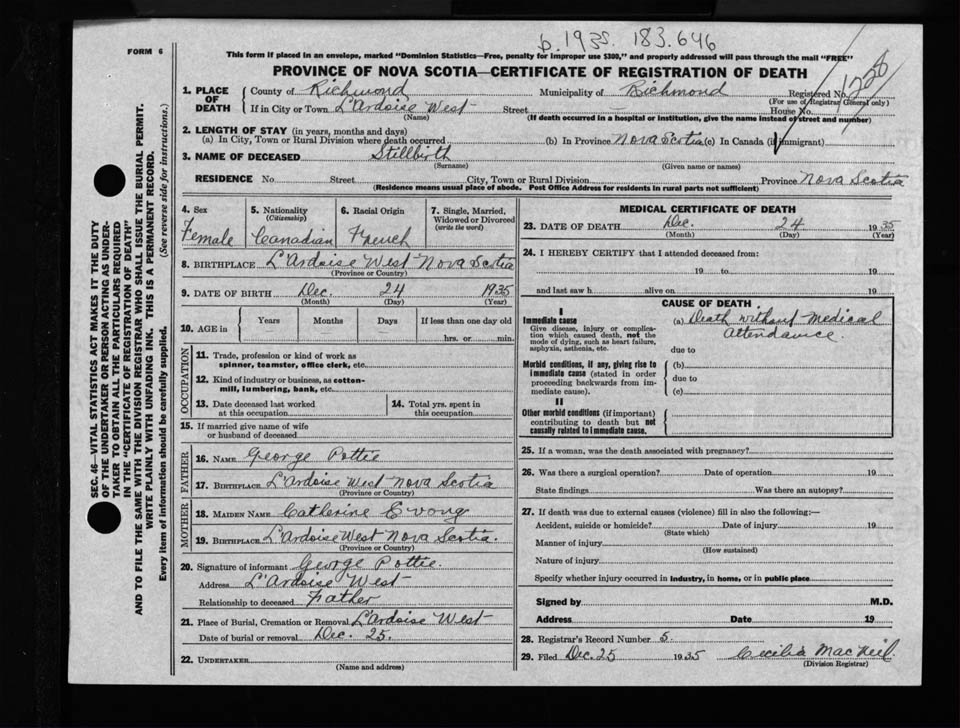 FORM 6
b. 1935. 183.646
This form if placed in an envelope, marked "Dominion Statistics—Free, penalty for improper use $300," and properly addressed will pass through the mail "FREE"
PROVINCE OF NOVA SCOTIA—CERTIFICATE OF REGISTRATION OF DEATH
1. PLACE OF DEATH County of Richmond Municipality of Richmond Registered No.
(For use of Registrar General only)
If in City or Town L'Ardoise West Street House No.
(Name) (If death occurred in a hospital or institution, give the name instead of street and number)
2. LENGTH OF STAY (in years, months and days)
(a) In City, Town or Rural Division where death occurred (b) In Province Nova Scotia (c) In Canada (if immigrant)
3. NAME OF DECEASED Stillbirth
(Surname) (Given name or names)
RESIDENCE No. Street City, Town or Rural Division Province Nova Scotia
(Residence means usual place of abode. Post Office Address for residents in rural parts not sufficient)
SEC. 46—VITAL STATISTICS ACT MAKES IT THE DUTY
OF THE UNDERTAKER OR PERSON ACTING AS UNDER-
TAKER TO OBTAIN ALL THE PARTICULARS REQUIRED
IN THE "CERTIFICATE OF REGISTRATION OF DEATH"
AND TO FILE THE SAME WITH THE DIVISION REGISTRAR WHO SHALL ISSUE THE BURIAL PERMIT.
WRITE PLAINLY WITH UNFADING INK. THIS IS A PERMANENT RECORD.
Every item of information should be carefully supplied. (See reverse side for instructions.)
4. Sex 5. Nationality (Citizenship) 6. Racial Origin 7. Single, Married, Widowed or Divorced (write the word)
Female Canadian French
8. BIRTHPLACE L'Ardoise West Nova Scotia
(Province or Country)
9. DATE OF BIRTH Dec. 24 1935
(Month) (Day) (Year)
10. AGE in Years Months Days If less than one day old
hrs. or min.
OCCUPATION
11. Trade, profession or kind of work as
spinner, teamster, office clerk, etc.
12. Kind of industry or business, as cotton-
mill, lumbering, bank, etc.
13. Date deceased last worked at this occupation 14. Total yrs. spent in this occupation
15. If married give name of wife
or husband of deceased
FATHER
16. NAME George Pottie
17. BIRTHPLACE L'Ardoise West Nova Scotia
(Province or Country)
MOTHER
18. MAIDEN NAME Catherine
19. BIRTHPLACE L'Ardoise West Nova Scotia.
(Province or Country)
20. Signature of informant George Pottie.
Address L'Ardoise West
Relationship to deceased Father
21. Place of Burial, Cremation or Removal L'Ardoise West
Date of burial or removal Dec. 25.
22. UNDERTAKER
(Name and address)
MEDICAL CERTIFICATE OF DEATH
23. DATE OF DEATH Dec. 24 1935
(Month) (Day) (Year)
24. I HEREBY CERTIFY that I attended deceased from:
19 to 19
and last saw h alive on 19
CAUSE OF DEATH
I
Immediate cause (a) Death without Medical
Attendance.
Give disease, injury or complica-
tion which caused death, not the
mode of dying, such as heart failure,
asphyxia, asthenia, etc. due to
Morbid conditions, if any, giving rise to (b)
immediate cause (stated in order
proceeding backwards from im- due to
mediate cause). (c)
II
Other morbid conditions (if important)
contributing to death but not
causally related to immediate cause.
25. If a woman, was the death associated with pregnancy?
26. Was there a surgical operation? Date of operation 19
State findings Was there an autopsy?
27. If death was due to external causes (violence) fill in also the following:—
Accident, suicide or homicide? Date of injury 19
(State which)
Manner of injury
(How sustained)
Nature of injury
Specify whether injury occurred in industry, in home, or in public place
Signed by M.D.
Address Date 19
28. Registrar's Record Number 5.
29. Filed Dec. 25 1935 Cecilia MacNeil.
(Division Registrar)